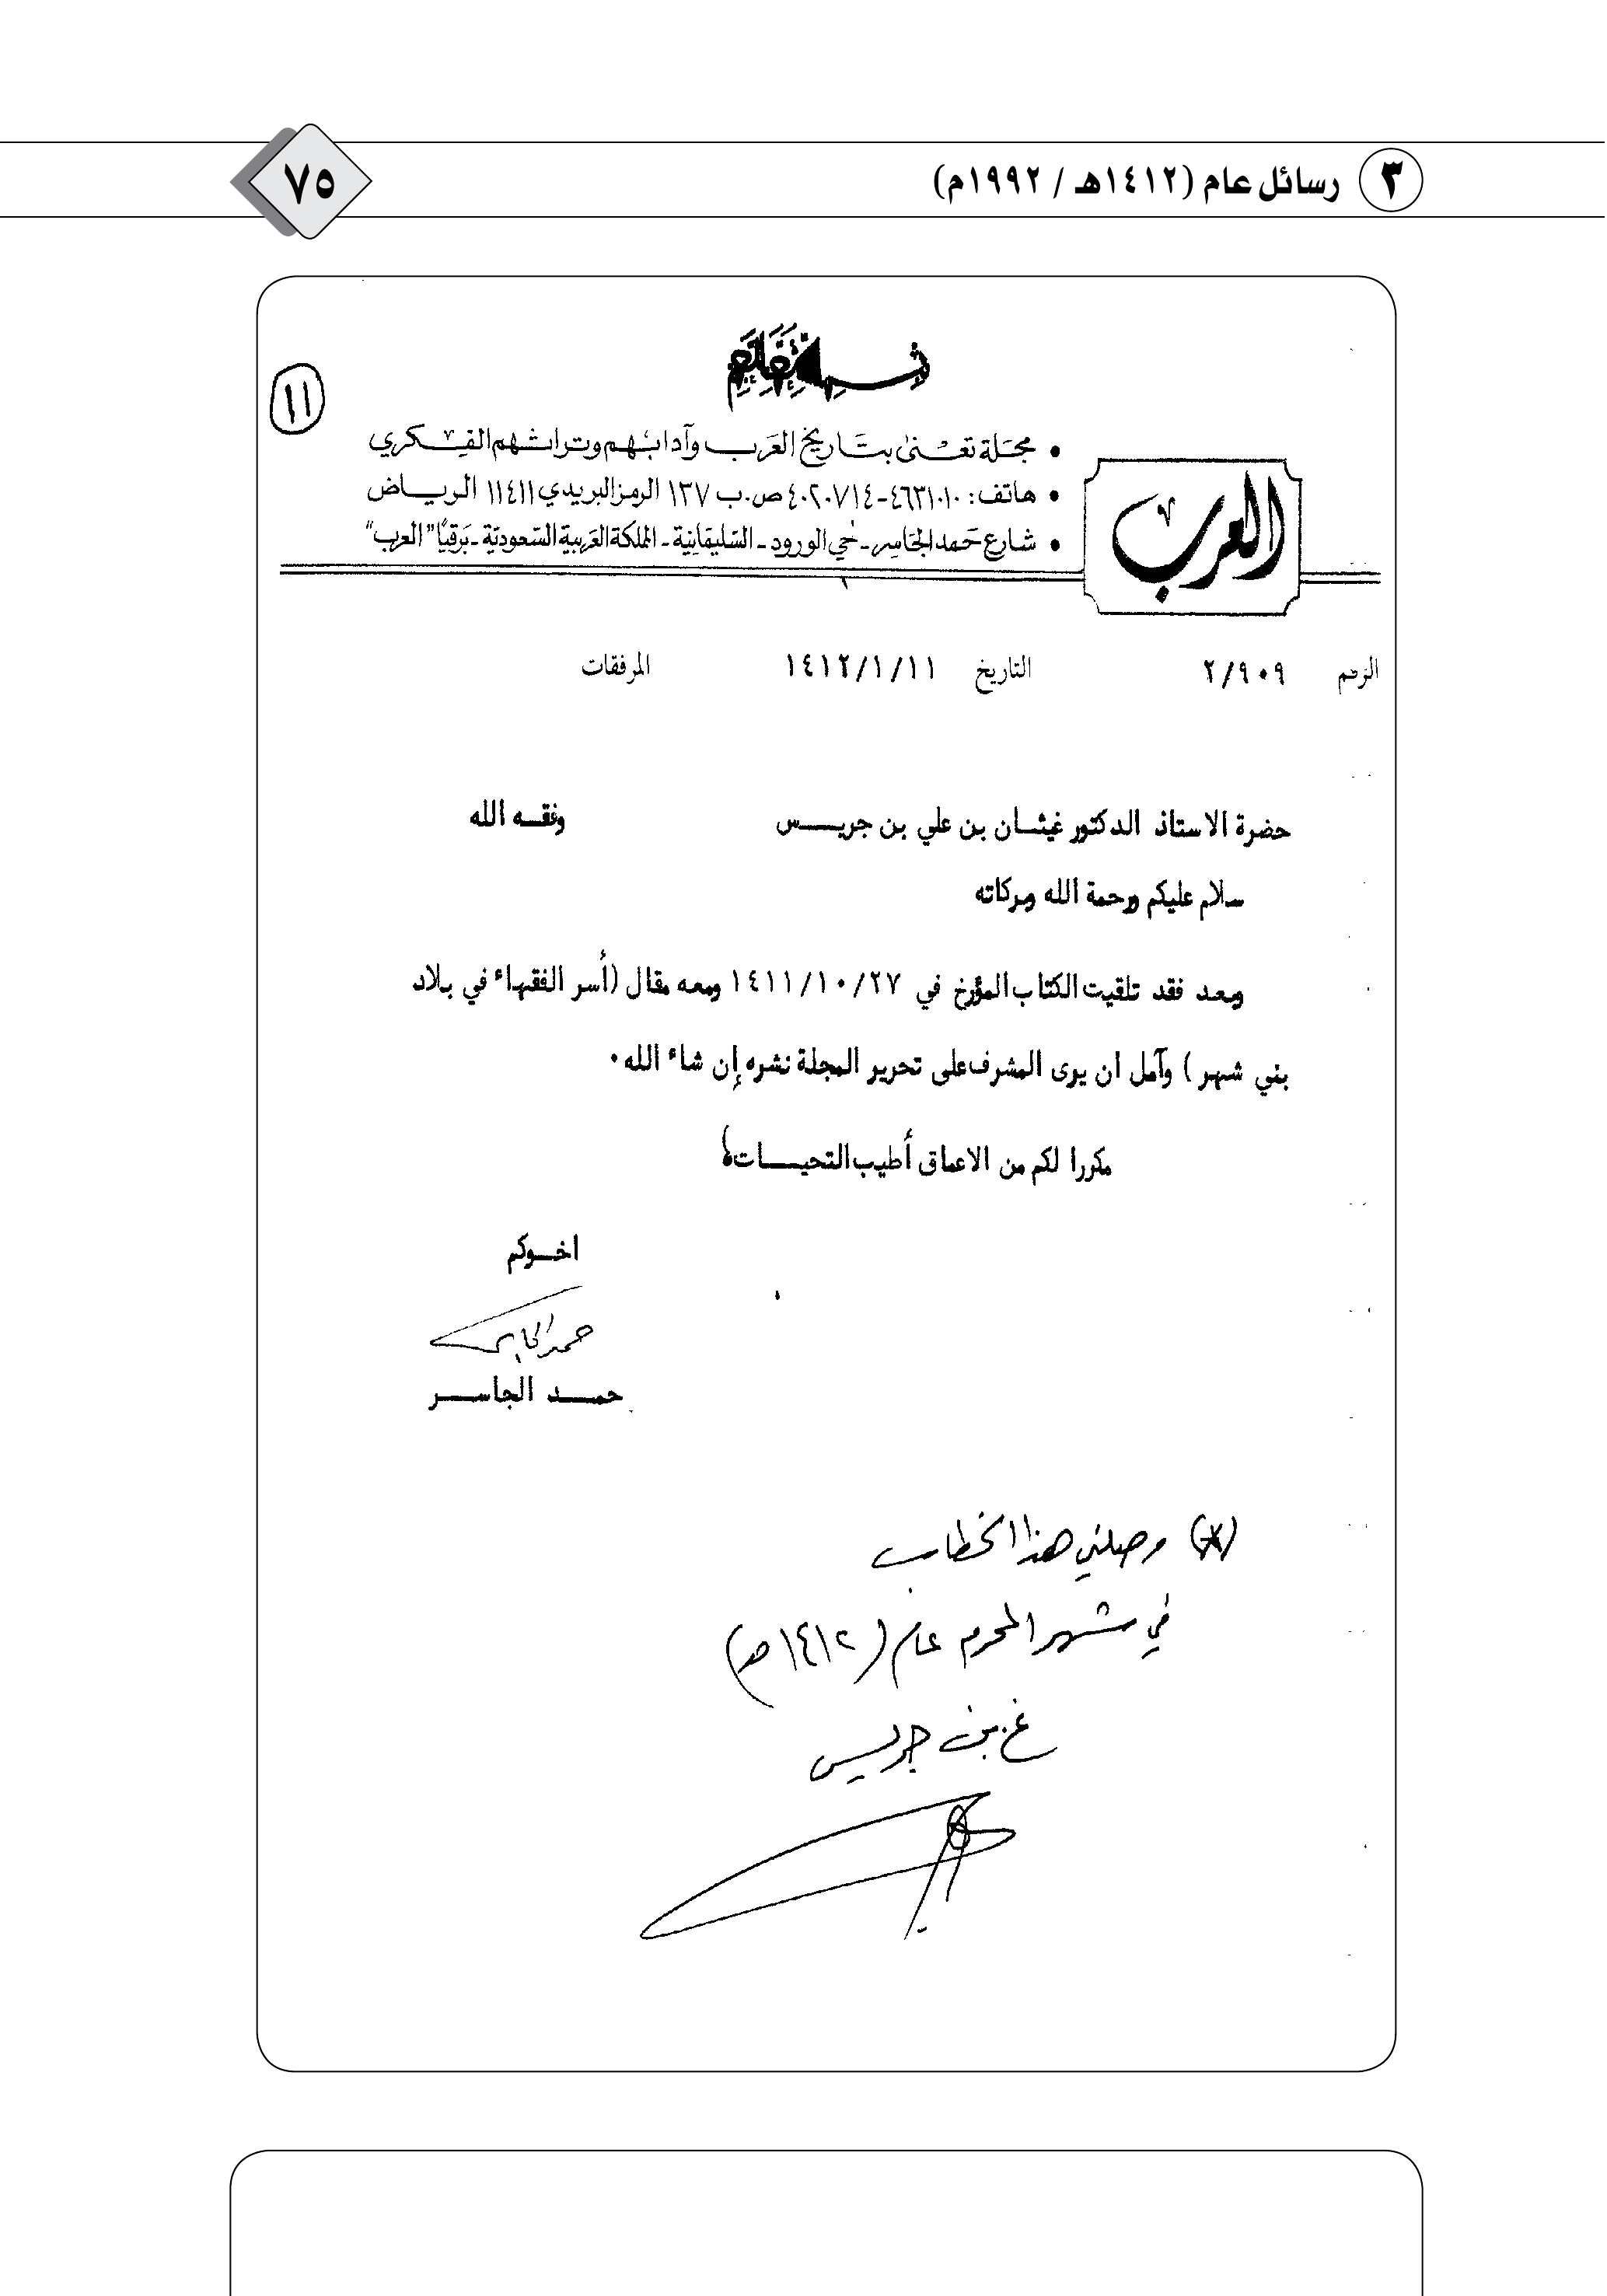 ٣ رسائل عام (١٤١٢هـ / ١٩٩٢م)
٧٥
١١
• مجلة تعنى بتاريخ العرب وآدابهم وتراثهم الفكري
• هاتف: ٤٦٣١٠١٠-٤٠٢٠٧١٤ ص.ب ١٣٧ الرمز البريدي ١١٤١١ الرياض
• شارع حمد الجاسر - حي الورود - السليمانية - المملكة العربية السعودية - برقيًا "العرب"
العرب
الرقم ٢/٩٠٩ التاريخ ١٤١٢/١/١١ المرفقات
حضرة الاستاذ الدكتور غيثان بن علي بن جريس وفقه الله
سلام عليكم ورحمة الله وبركاته
وبعد فقد تلقيت الكتاب المؤرخ في ١٤١١/١٠/٢٧ ومعه مقال (أسر الفقهاء في بلاد
بني شهر) وآمل ان يرى المشرف على تحرير المجلة نشره إن شاء الله.
مكررا لكم من الاعماق أطيب التحيات،
اخوكم
حمد الجاسر
حمد الجاسر
(*) وصلني هذا الخطاب
في شهر المحرم عام (١٤١٢هـ)
غ. بن جريس